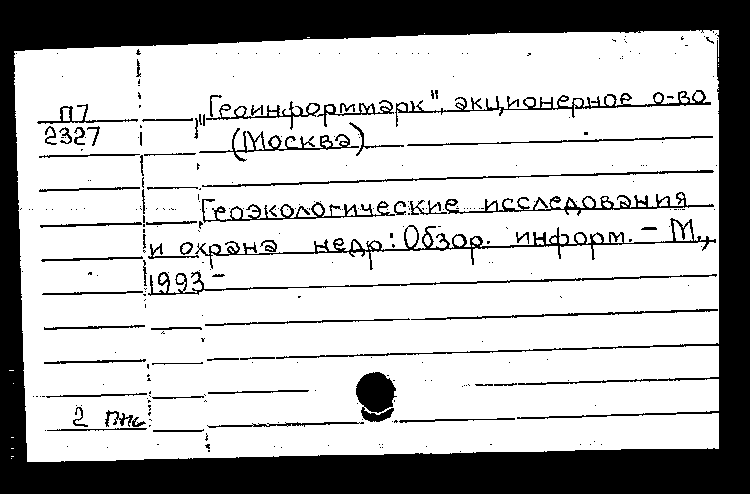 П7
2327
"Геоинформмарк", акционерное о-во
(Москва)
Геоэкологические исследования
и охрана недр: Обзор. информ. – М.,
1993 –
2